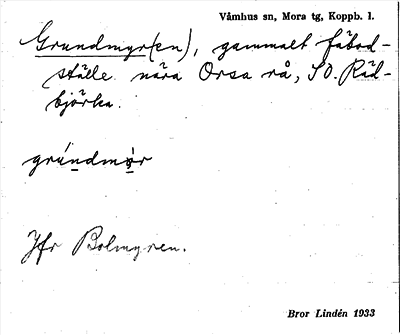 Våmhus sn, Mora tg, Koppb. l.
Grundmyr(en), gammalt fäbod-
ställe nära Orsa rå, SO. Räd-
bjørka.
Jfr Bolmyren.
Bror Lindén 1933